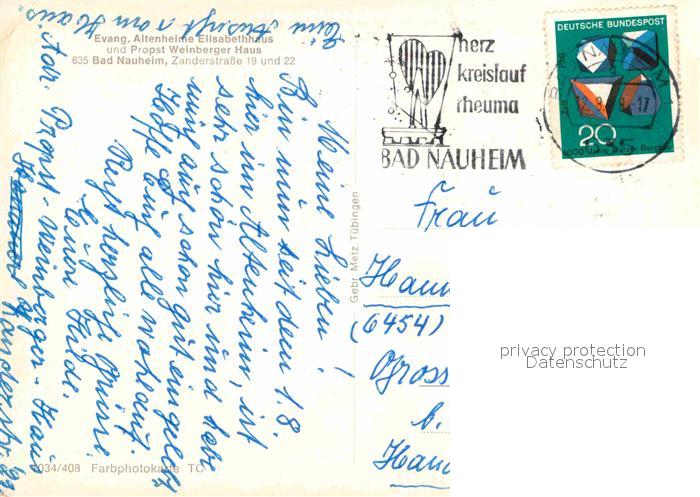 Eine Ansicht vom Haus
Evang. Altenheime Elisabethhaus
und Propst Weinberger Haus
635 Bad Nauheim, Zanderstraße 19 und 22
Meine Lieben!
Bin nun seit dem 1.8.
hier im Altenheim, ist
sehr schön hier und habe
mich auch schon gut eingelebt
Hoffe Euch alle wohlauf.
Recht herzliche Grüsse
Eure
Adr. Propst-Weinberger-Haus
Zanderstr.
1034/408 Farbphotokarte TC
Gebr Metz Tübingen
herz
kreislauf
rheuma
BAD NAUHEIM
DEUTSCHE BUNDESPOST
20
Frau
(6454)
Gross
b.
privacy protection
Datenschutz